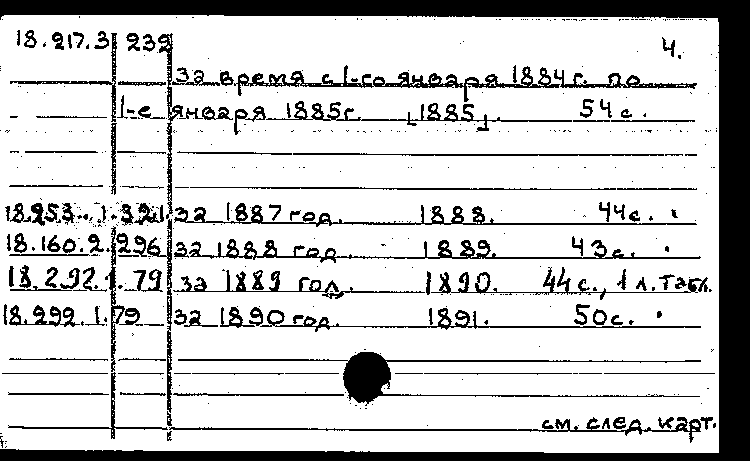 18.217.3 232 4.
за время с 1-го января 1884 г. по
1-е января 1885 г. [1885]. 54 с.
18.253.1.321 за 1887 год. 1888. 44 с.
18.160.2.296 за 1888 год 1889. 43 с.
18.292.1.79 за 1889 год. 1890. 44 с., 1 л. табл.
18.292.1.79 за 1890 год. 1891. 50 с.
см. след. карт.